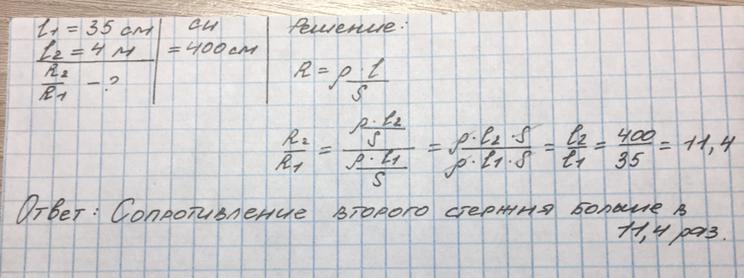 l₁ = 35 см | СИ | Решение:
l₂ = 4 м | = 400 см
R₂/R₁ - ? | R = ρ · l / S
R₂/R₁ = (ρ · l₂ / S) / (ρ · l₁ / S) = ρ · l₂ · S / ρ · l₁ · S = l₂/l₁ = 400/35 = 11,4
Ответ: Сопротивление второго стержня больше в
11,4 раз.